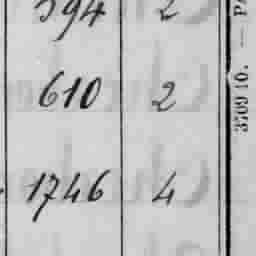 594 2
610 2
1746 4
3769 40. — P